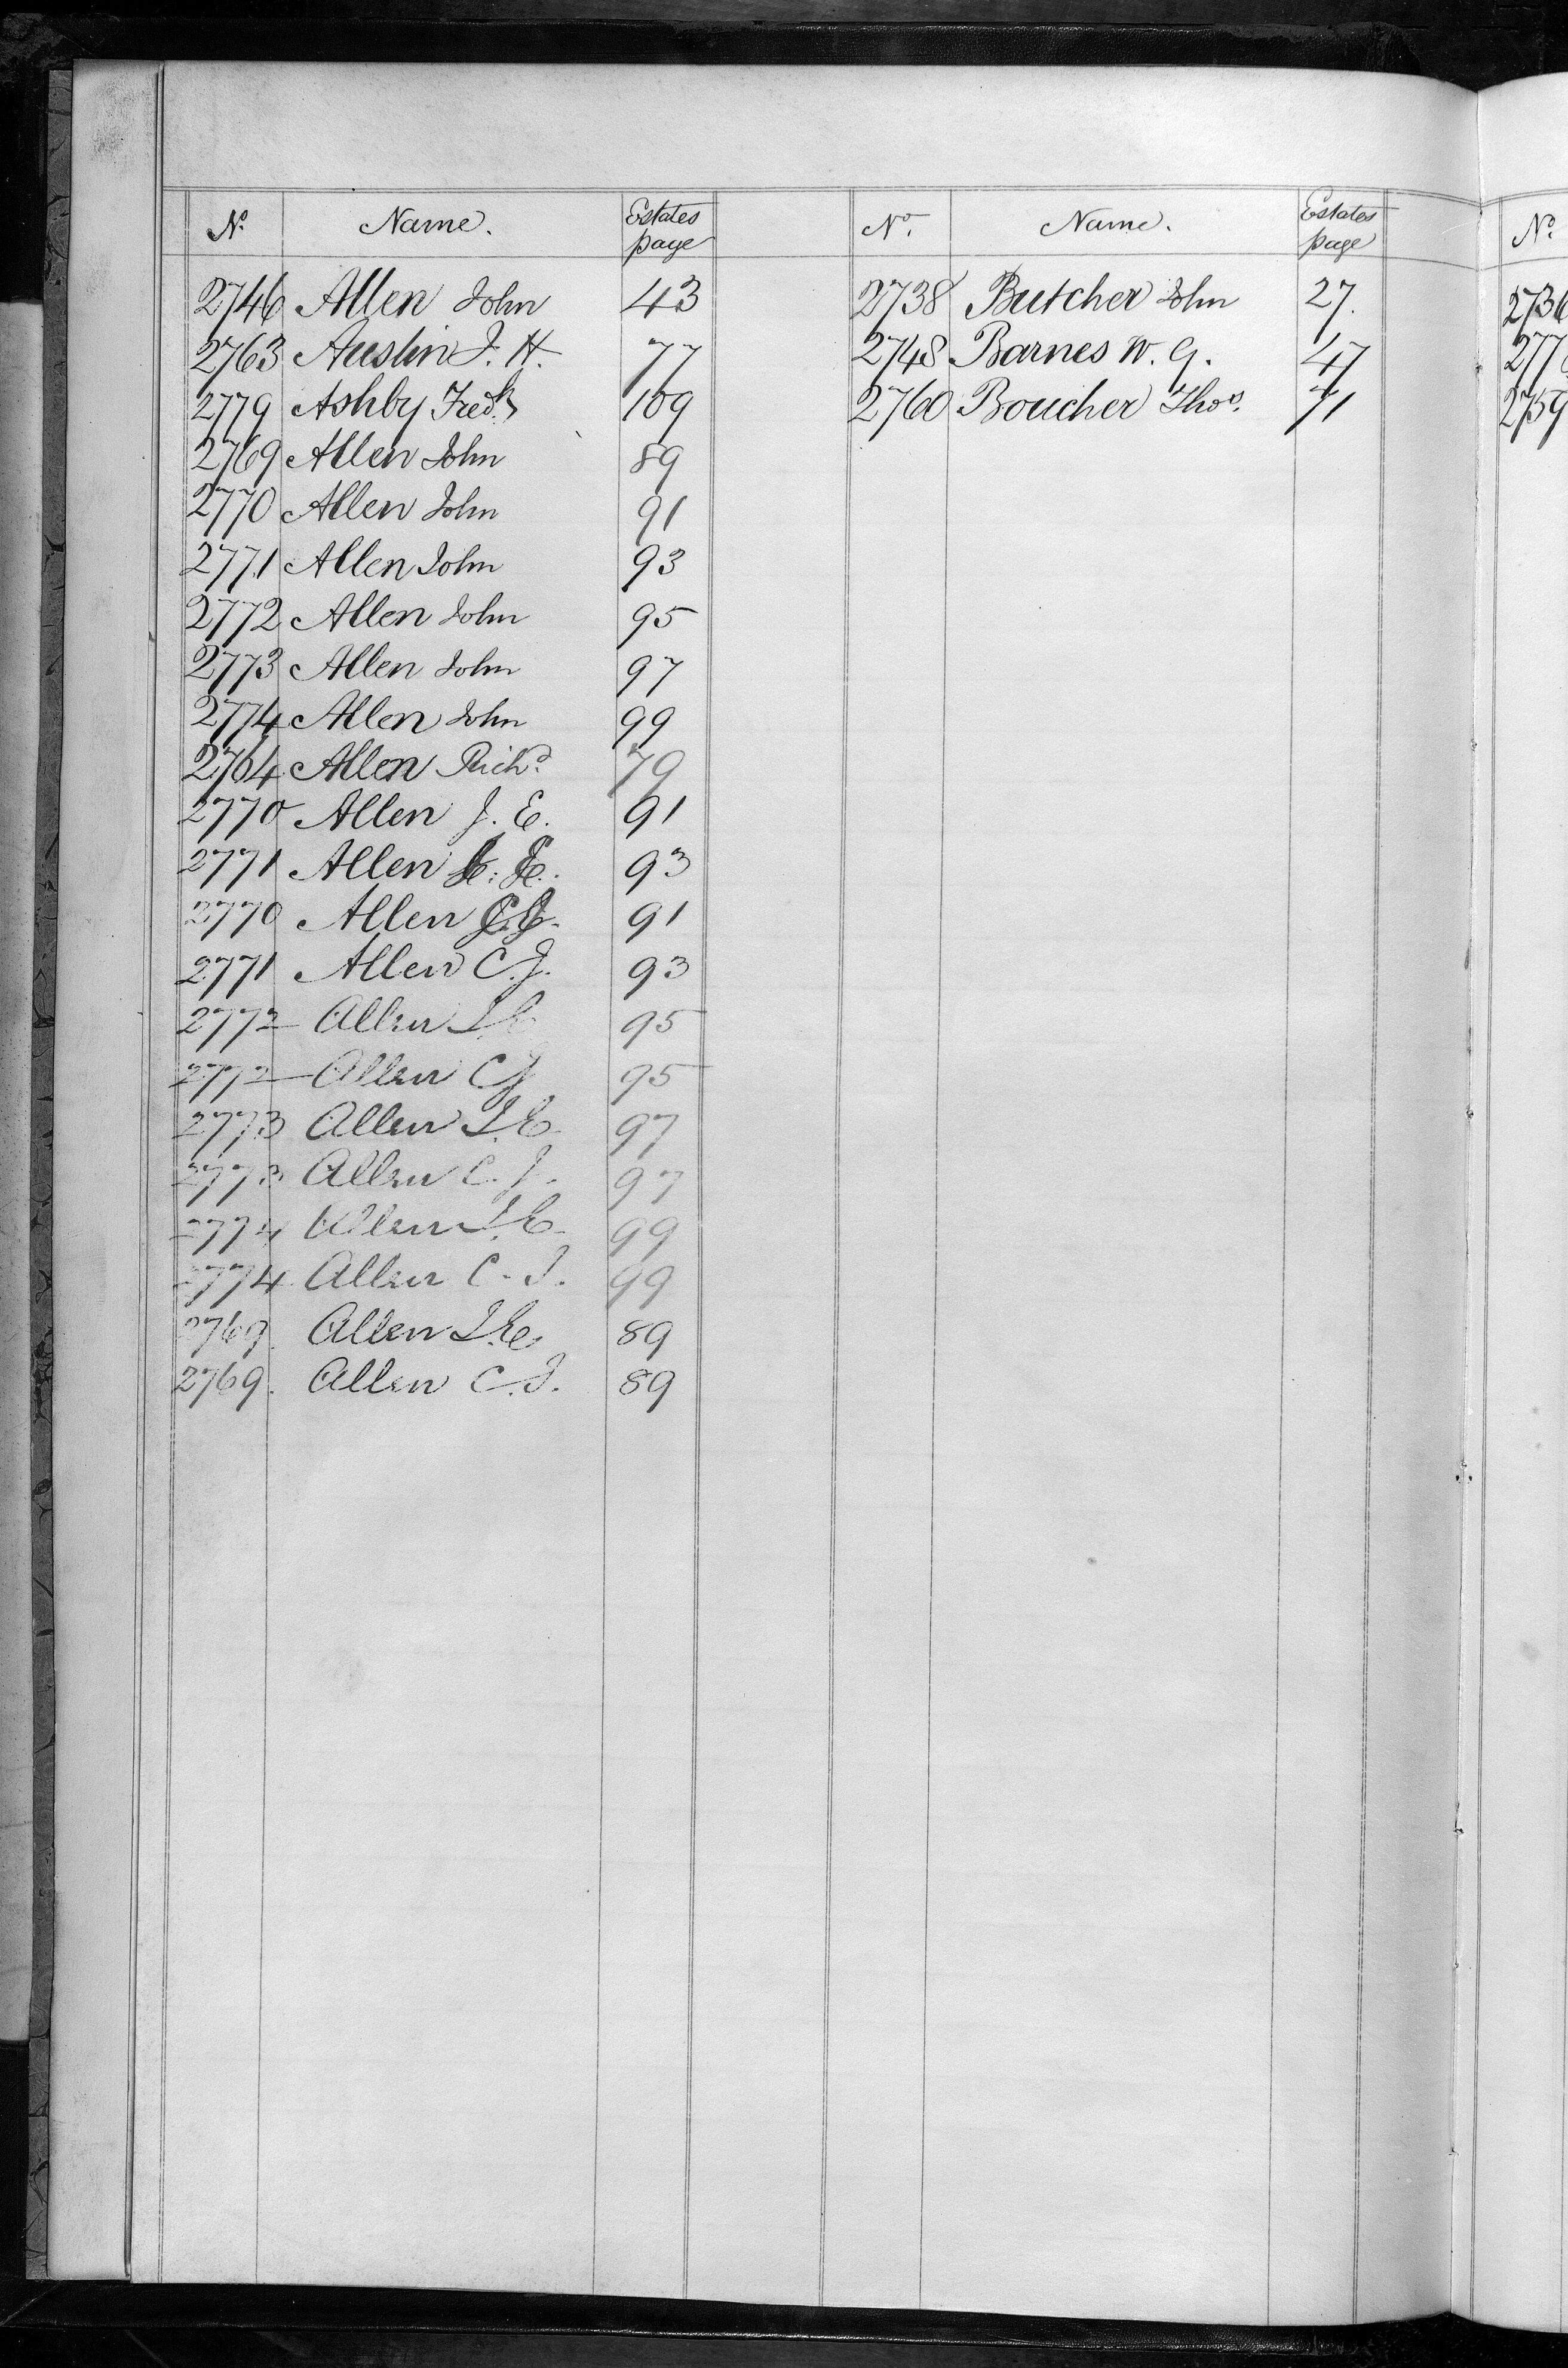 No. Name. Estates page
2746 Allen John 43
2763 Austin J. H. 77
2779 Ashby Fredk 109
2769 Allen John 89
2770 Allen John 91
2771 Allen John 93
2772 Allen John 95
2773 Allen John 97
2774 Allen John 99
2764 Allen Richd. 79
2770 Allen J. E. 91
2771 Allen 93
2770 Allen 91
2771 Allen C. J. 93
2772 Allen J. E 95
2772 Allen C J 95
2773 Allen J. E 97
2773 Allen C. J. 97
2774 Allen J. E 99
2774 Allen C. J. 99
2769. Allen J. E 89
2769. Allen C. J. 89
No. Name. Estates page
2738 Butcher John 27.
2748 Barnes W. G. 47
2760 Boucher Thos. 71
No.
2759